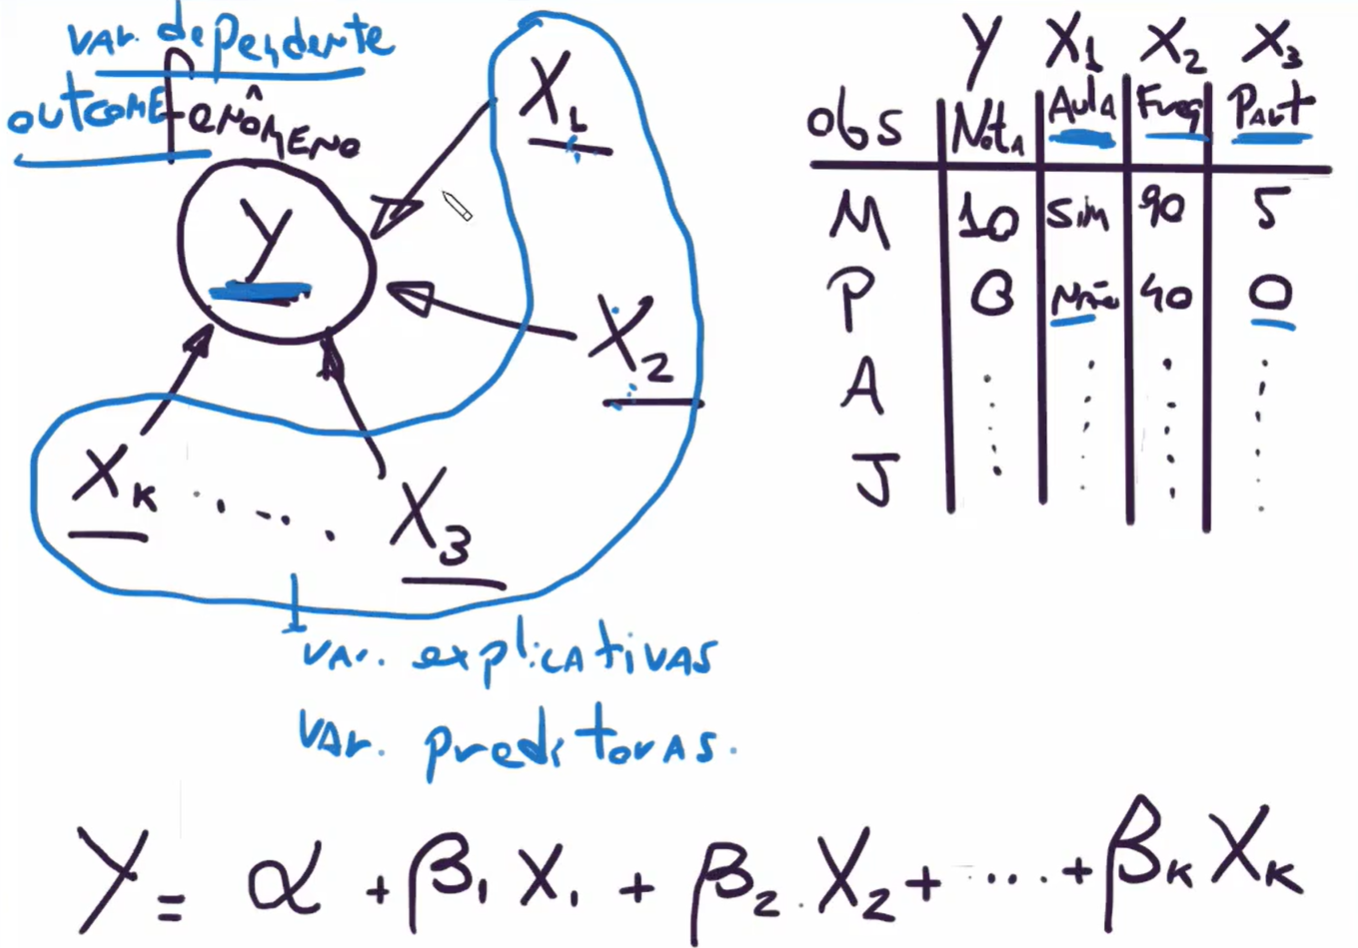 var. dependente
outcome
Fenômeno
Y
X1
X2
X3
XK
var. explicativas
var. preditoras.
Y X1 X2 X3
obs Nota Aula Freq Part
M 10 sim 90 5
P 0 Não 40 0
A
J
Y = α + β1 X1 + β2 . X2 + .... + βK XK